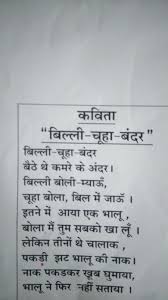 कविता
"बिल्ली-चूहा-बंदर"
बिल्ली-चूहा-बंदर
बैठे थे कमरे के अंदर।
बिल्ली बोली-म्याऊँ,
चूहा बोला, बिल में जाऊँ ।
इतने में आया एक भालू ,
बोला मैं तुम सबको खा लूँ ।
लेकिन तीनों थे चालाक ,
पकड़ी झट भालू की नाक।
नाक पकडकर खूब घुमाया,
भालू ने फिर नहीं सताया ।